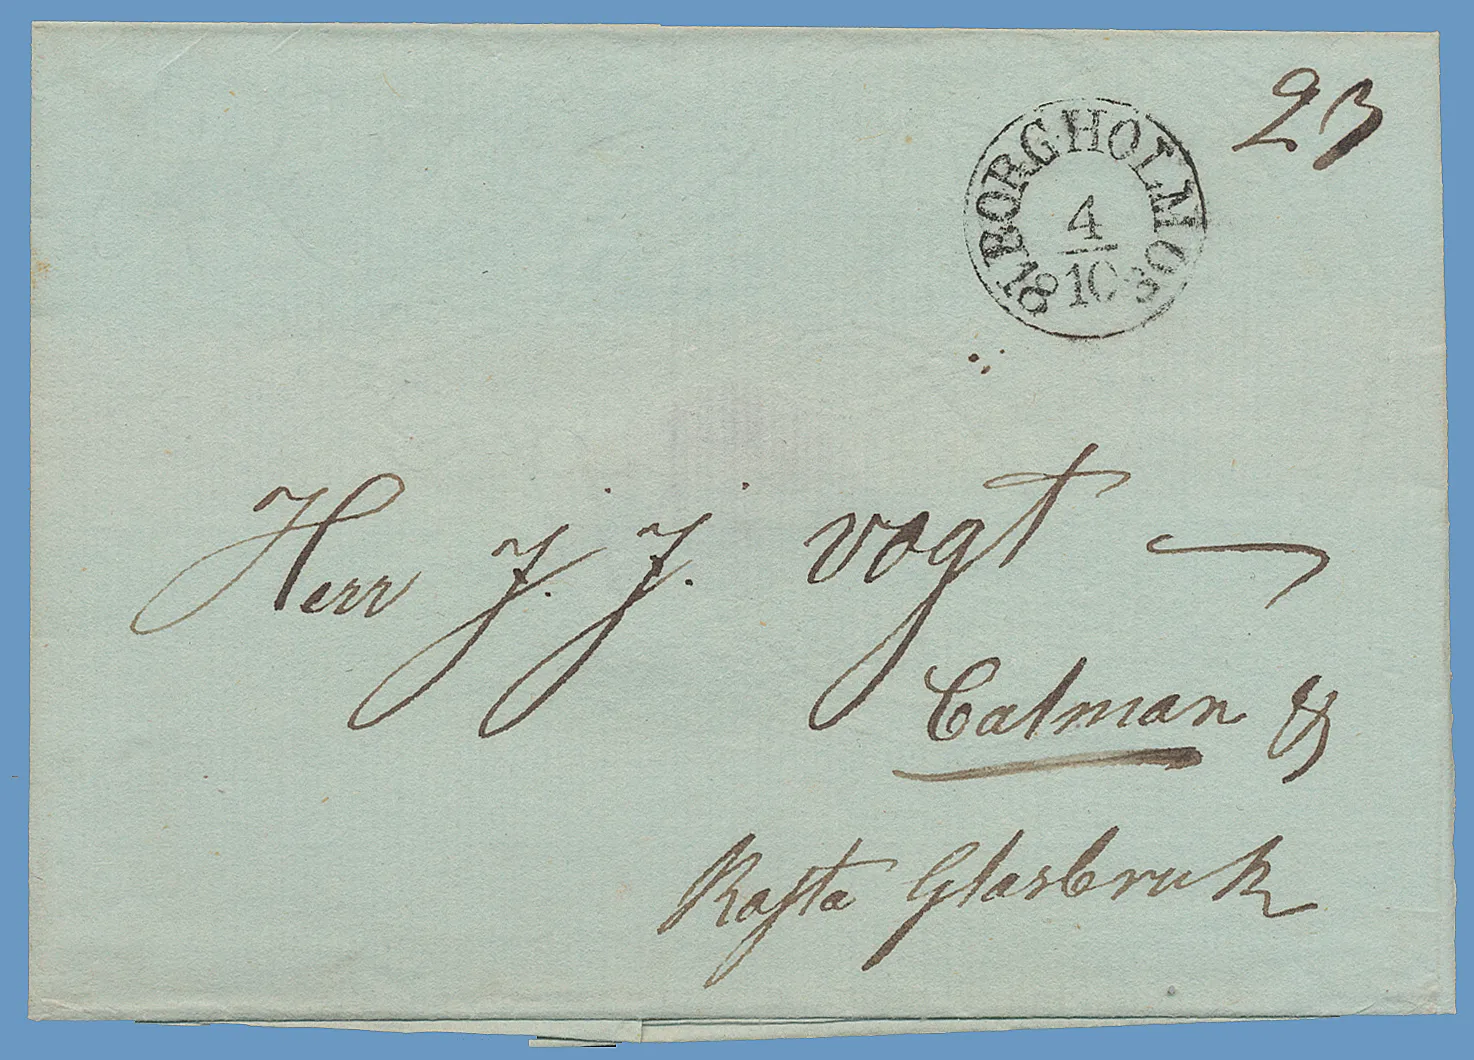 23
BORGHOLM
4
10
1830
Herr J. J. Vogt
Calmar &
Rasta Glasbruk